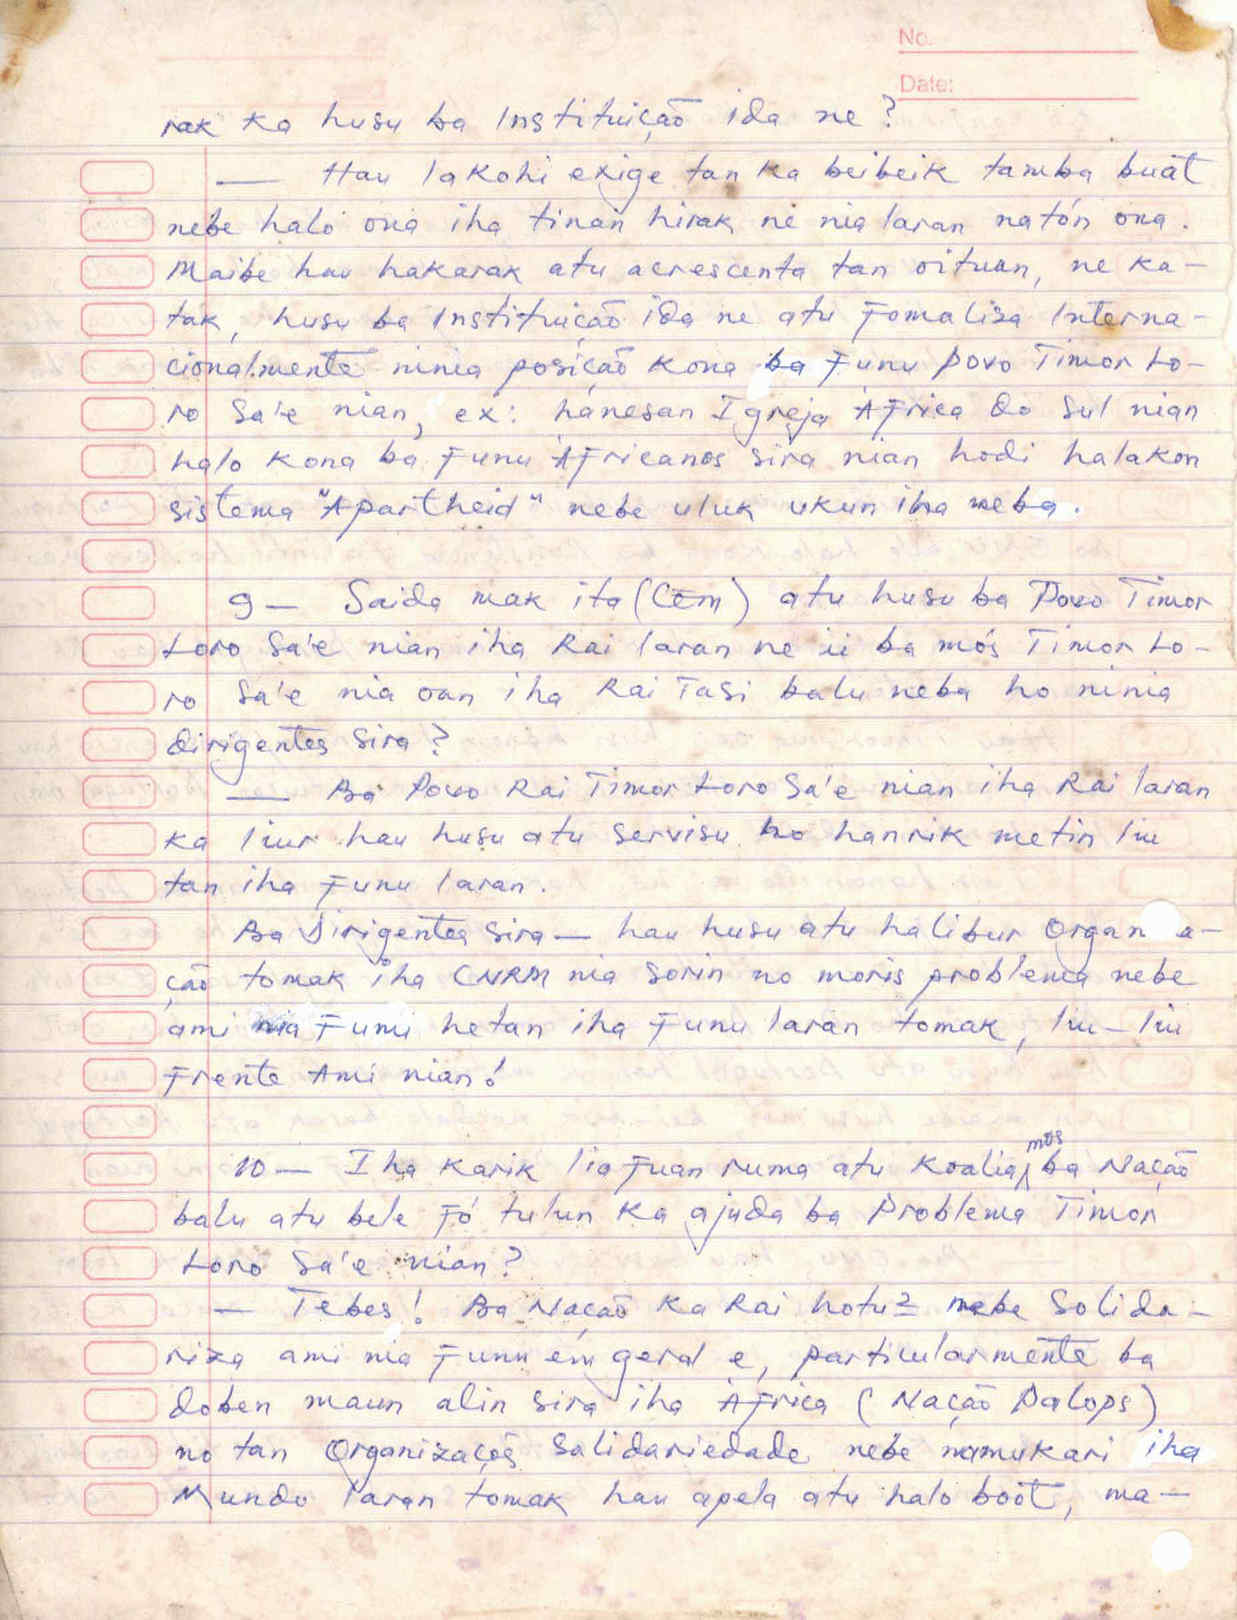 No.
Date:
rak ka husu ba Instituição ida ne?
— Hau lakohi exige tan ka beibeik tamba buat
nebe halo ona iha tinan hirak ne nia laran natón ona.
Maibe hau hakarak atu acrescenta tan oituan, ne ka-
tak, husu ba Instituição ida ne atu Fomaliza Interna-
cionalmente ninia posição kona ba Funu Povo Timor Lo-
ro Sa'e nian, ex: hanesan Igreja África do Sul nian
halo kona ba Funu Áfricanos sira nian hodi halakon
sistema "Apartheid" nebe uluk ukun iha neba.
9 — Saida mak ita (CEM) atu husu ba Povo Timor
Loro Sa'e nian iha Rai laran ne ii ba mós Timor Lo-
ro Sa'e nia oan iha Rai Tasi balu neba ho ninia
dirigentes sira?
— Ba Povo Rai Timor Loro Sa'e nian iha Rai laran
ka liur hau husu atu servisu ho hanrik metin liu
tan iha Funu laran.
Ba Dirigentes sira — hau husu atu halibur Organ a-
ção tomak iha CNRM nia sorin no moris problema nebe
ami nia Funu hetan iha Funu laran tomak, liu-liu
Frente Ami nian!
10 — Iha karik lia Fuan ruma atu koalia mós ba Nação
balu atu bele Fó tulun ka ajuda ba Problema Timor
Loro Sa'e nian?
— Tebes! Ba Nação ka Rai hotu2 nebe Solida-
riza ami nia Funu em geral e, particularmente ba
doben maun alin sira iha África (Nação Palops)
no tan Organizaçoẽs Salidariedade nebe namukari iha
Mundo laran tomak hau apela atu halo boót, ma-